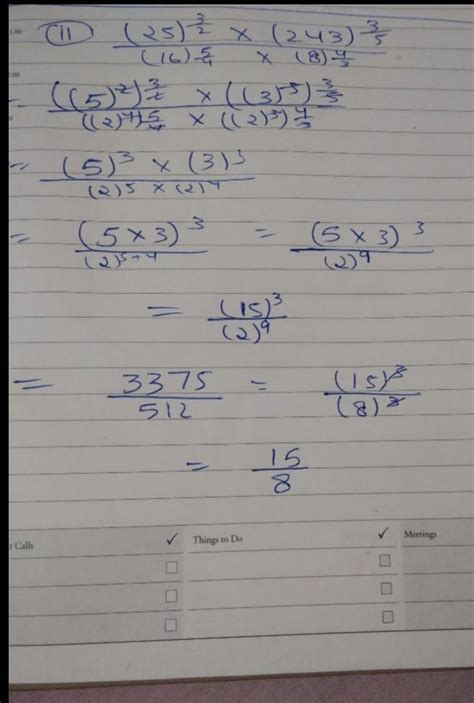 (11) (25)^3/2 × (243)^3/5 / (16)^5/4 × (8)^4/3
= ((5)^2)^3/2 × ((3)^5)^3/5 / ((2)^4)^5/4 × ((2)^3)^4/3
= (5)^3 × (3)^3 / (2)^5 × (2)^4
= (5×3)^3 / (2)^5+4 = (5×3)^3 / (2)^9
= (15)^3 / (2)^9
= 3375 / 512 = (15)^3 / (8)^3
= 15 / 8
Calls ✓ Things to Do ✓ Meetings